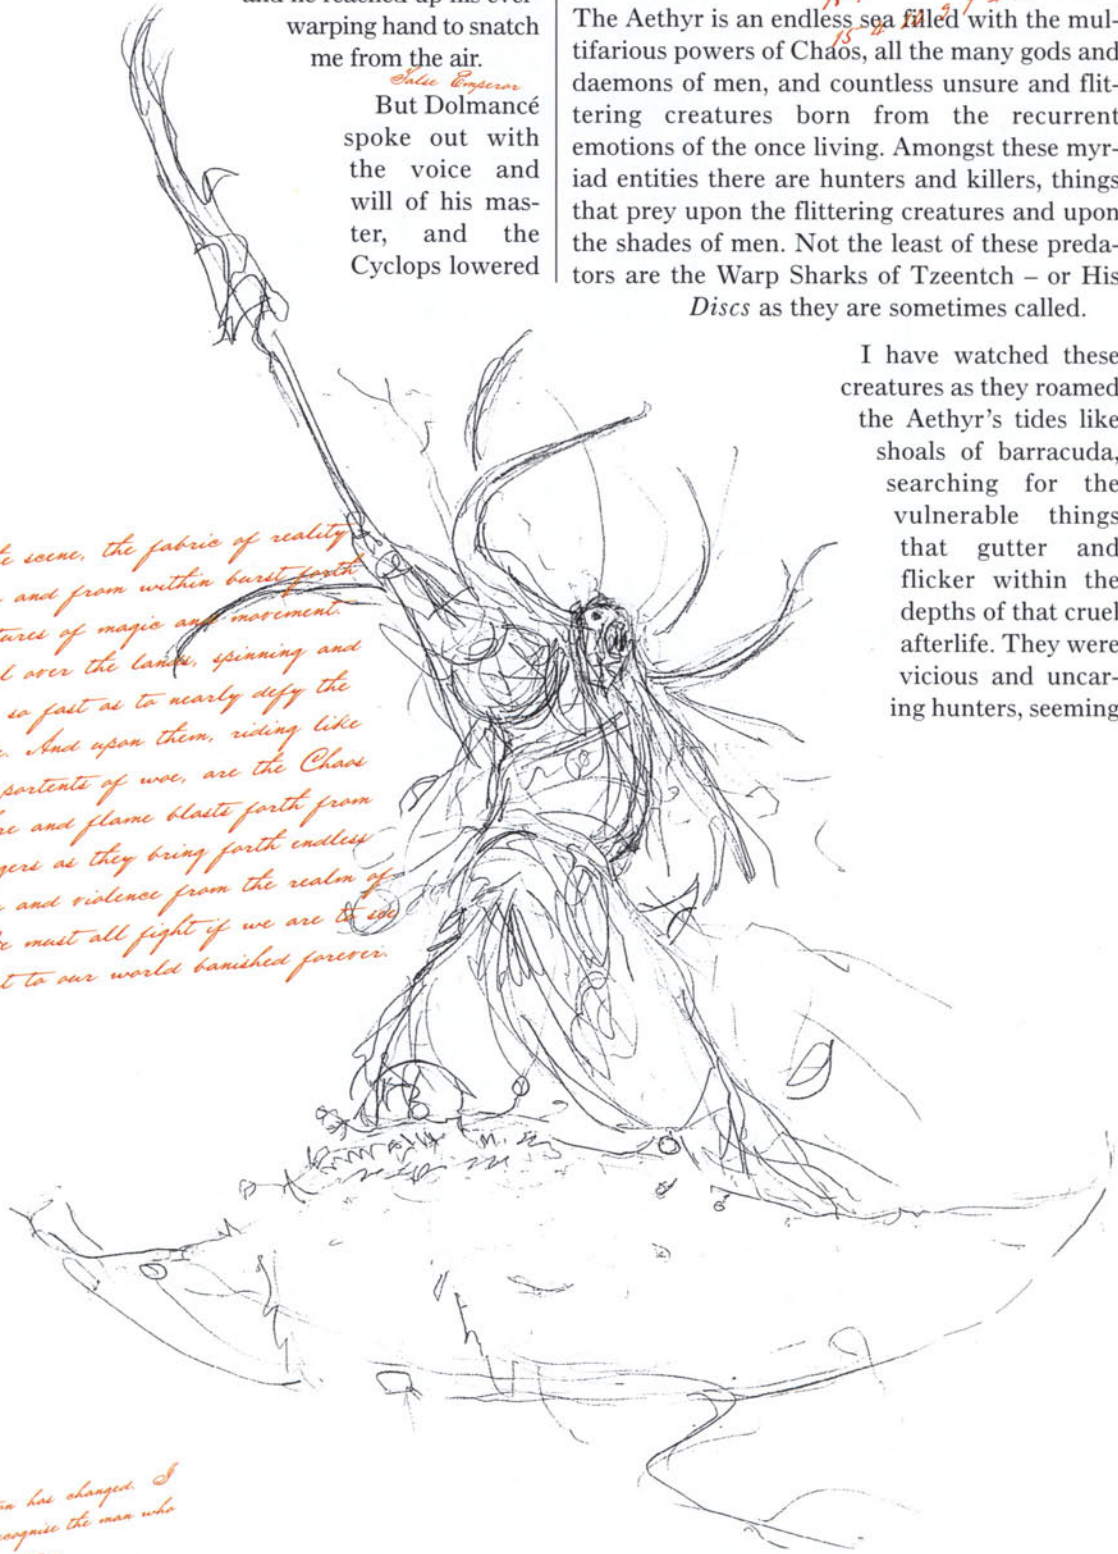 warping hand to snatch
me from the air.
False Emperor
But Dolmancé
spoke out with
the voice and
will of his mas-
ter, and the
Cyclops lowered
The Aethyr is an endless sea filled with the mul-
tifarious powers of Chaos, all the many gods and
daemons of men, and countless unsure and flit-
tering creatures born from the recurrent
emotions of the once living. Amongst these myr-
iad entities there are hunters and killers, things
that prey upon the flittering creatures and upon
the shades of men. Not the least of these preda-
tors are the Warp Sharks of Tzeentch – or His
Discs as they are sometimes called.
I have watched these
creatures as they roamed
the Aethyr's tides like
shoals of barracuda,
searching for the
vulnerable things
that gutter and
flicker within the
depths of that cruel
afterlife. They were
vicious and uncar-
ing hunters, seeming
scene, the fabric of reality
and from within burst forth
of magic and movement
over the lands, spinning and
so fast as to nearly defy the
And upon them, riding like
portents of woe, are the Chaos
and flame blasts forth from
as they bring forth endless
and violence from the realm of
must all fight if we are to see
to our world banished forever.
has changed. I
the man who